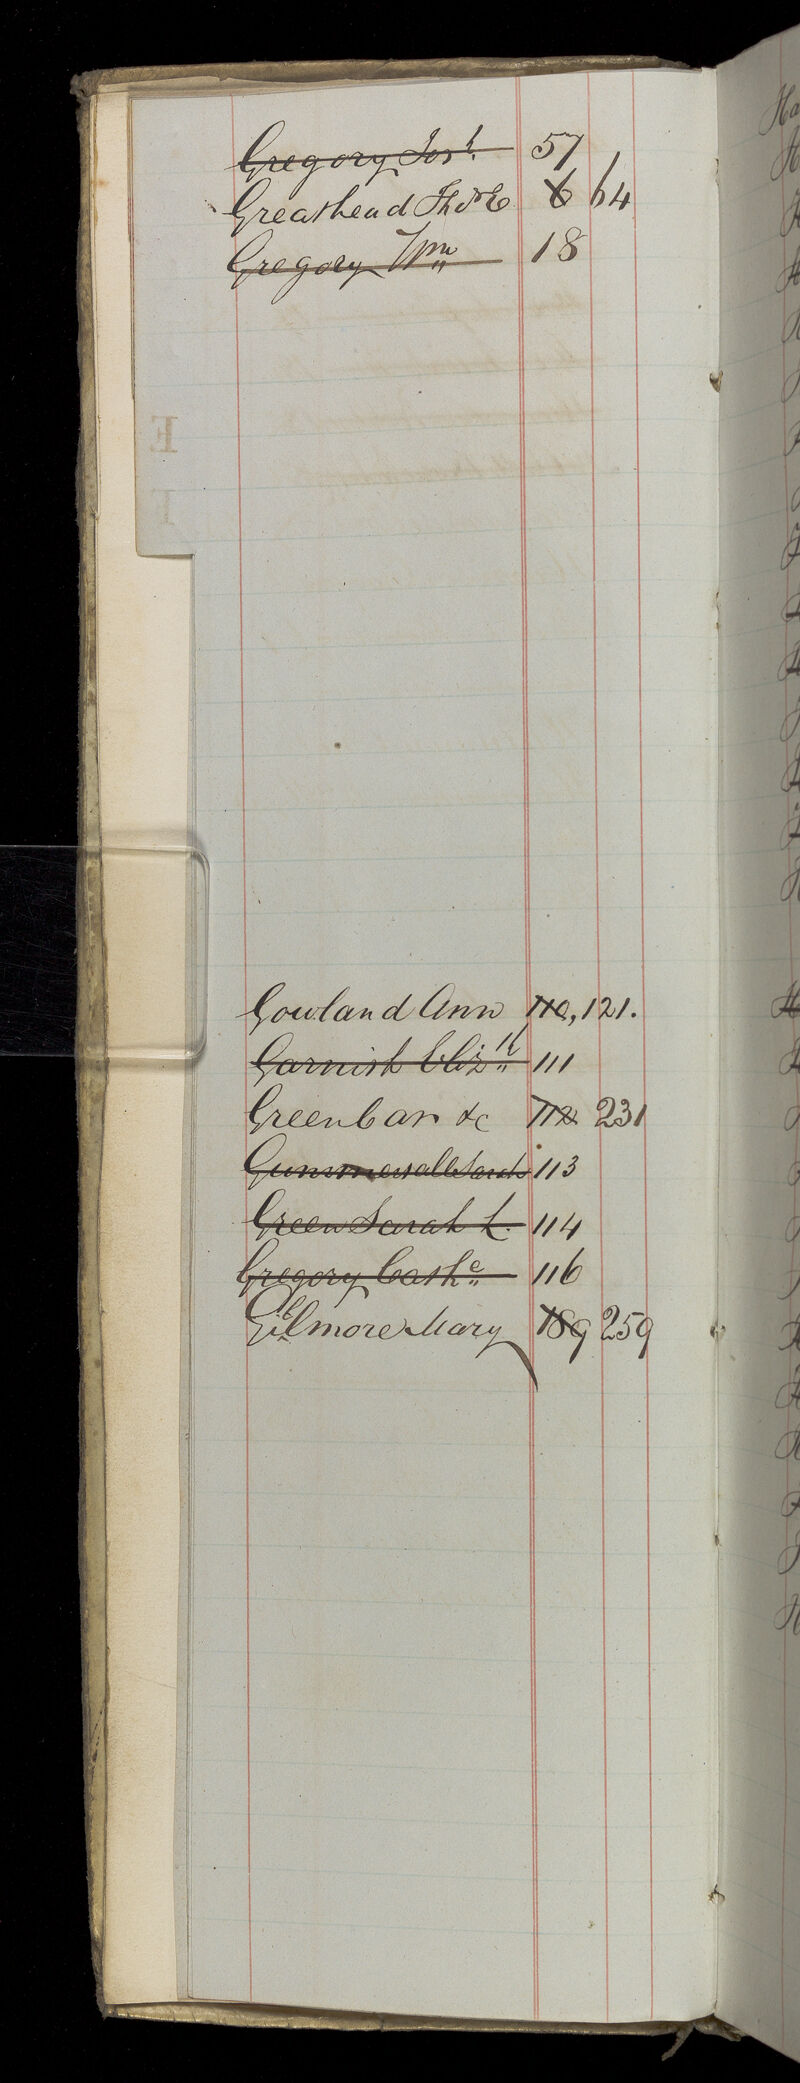 Gregory Josh. 57
Greathead Thos E 6 64
Gregory Wm 18
Gowland Ann 110, 121.
Garnish Elizth 111
Green Car &c 112 231
Gummersall Sarah 113
Green Sarah L. 114
Gregory Cathe 116
Gilmore Mary 189 259